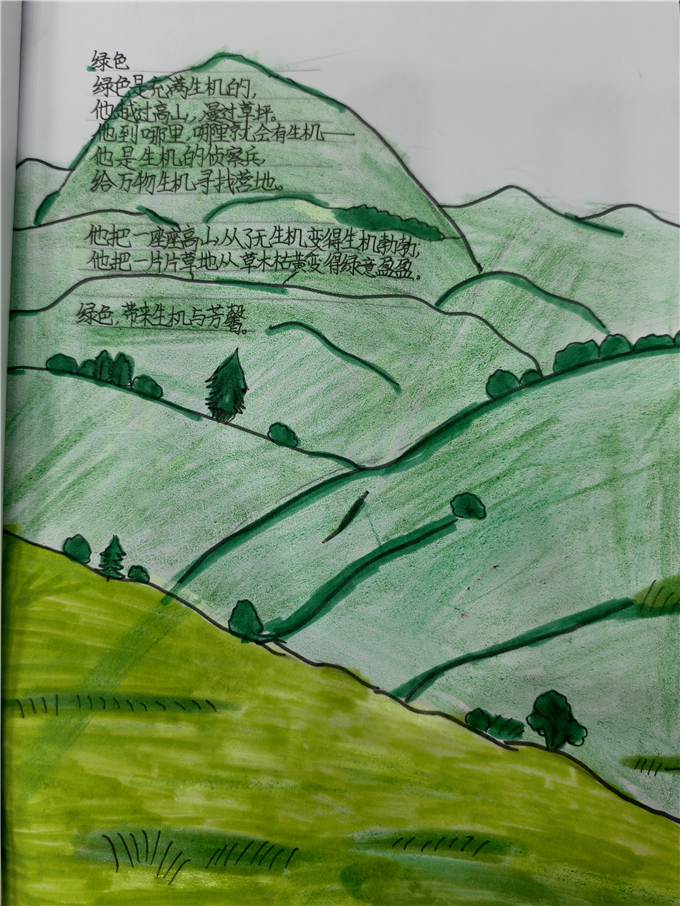 绿色
绿色是充满生机的，
他越过高山，漫过草坪。
他到哪里，哪里就会有生机——
他是生机的侦察兵，
给万物生机寻找营地。
他把一座座高山从了无生机变得生机勃勃，
他把一片片草地从草木枯黄变得绿意盈盈。
绿色，带来生机与芳馨。